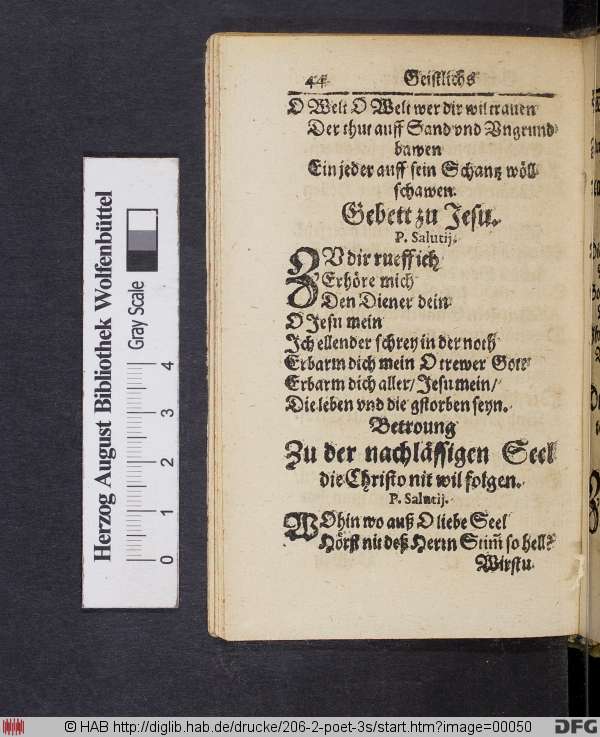 44 Geistlichs
O Welt O Welt wer dir wil trauen
Der thut auff Sand vnd Vngrund
bawen
Ein jeder auff sein Schantz wöll
schawen.
Gebett zu Jesu.
P. Salutij.
ZV dir rueff ich
Erhöre mich
Den Diener dein
O Jesu mein
Ich ellender schrey in der noth
Erbarm dich mein O trewer Gott
Erbarm dich aller/ Jesu mein/
Die leben vnd die gstorben seyn.
Betroung
Zu der nachlässigen Seel
die Christo nit wil folgen.
P. Salutij.
WOhin wo auß O liebe Seel
Hörst nit deß Herrn Stim̃ so hell?
Wirstu
Herzog August Bibliothek Wolfenbüttel
Gray Scale
0 1 2 3 4
© HAB http://diglib.hab.de/drucke/206-2-poet-3s/start.htm?image=00050
DFG